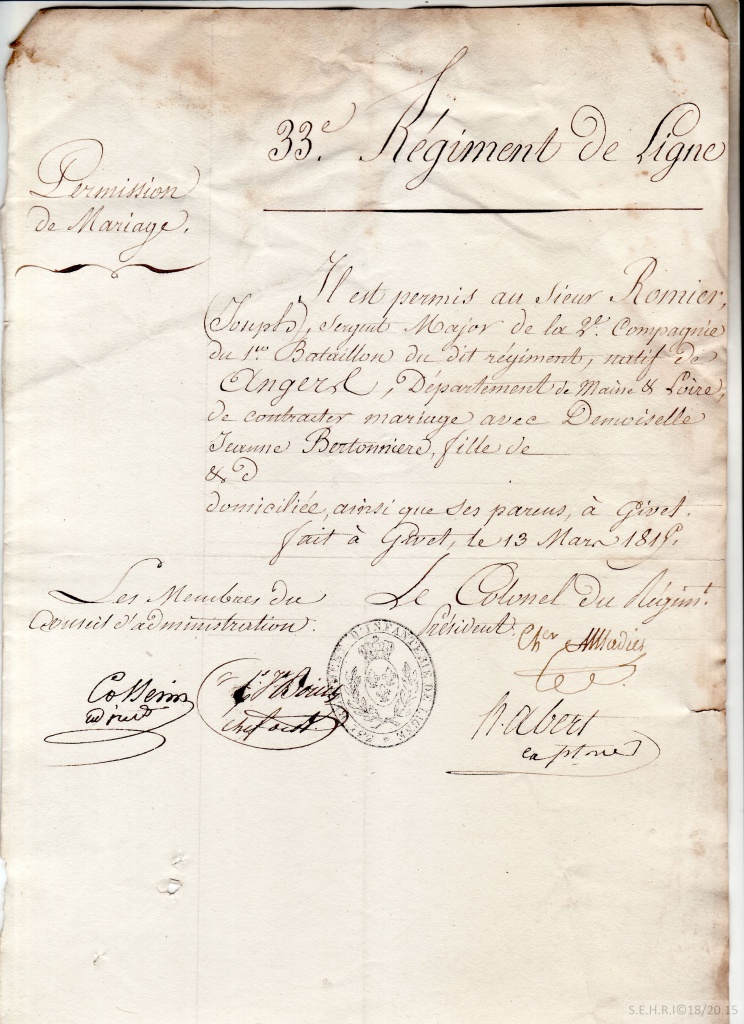 33.e Régiment de Ligne
Permission
de Mariage.
Il est permis au Sieur Romier,
(Joseph), Sergent Major de la 2e. Compagnie
du 1er Bataillon du dit régiment, natif de
Angers, Département de Maine & Loire,
de contracter mariage avec Demoiselle
Jeanne Bertonniere, fille de
& d
domiciliée, ainsi que ses parens, à Givet.
fait à Givet, le 13 Mars 1815.
Les Membres du
Conseil d'administration.
Le Colonel du Régimt.
Président.
Cher
D'INFANTERIE DE LIGNE
h. abert
capne
S.E.H.R.I©18/20.15